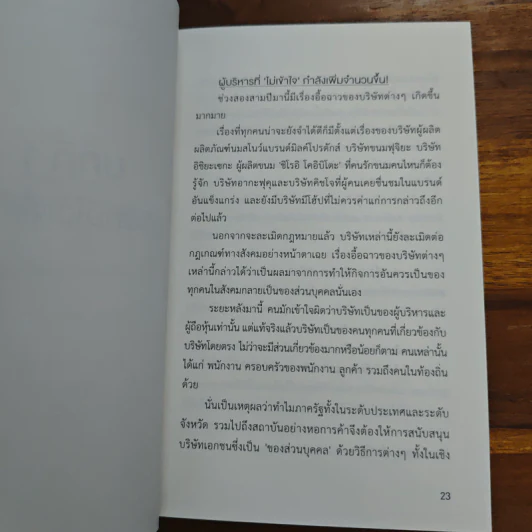 ผู้บริหารที่ 'ไม่เข้าใจ' กำลังเพิ่มจำนวนขึ้น!
ช่วงสองสามปีมานี้มีเรื่องอื้อฉาวของบริษัทต่างๆ เกิดขึ้น
มากมาย
เรื่องที่ทุกคนน่าจะยังจำได้ดีก็มีตั้งแต่เรื่องของบริษัทผู้ผลิต
ผลิตภัณฑ์นมสโนว์แบรนด์มิลค์โปรดักส์ บริษัทขนมฟุจิยะ บริษัท
อิชิยะเซกะ ผู้ผลิตขนม 'ชิโรอิ โคอิบิโตะ' ที่คนรักขนมคนไหนก็ต้อง
รู้จัก บริษัทอากะฟุคุและบริษัทคิชโจที่ผู้คนเคยชื่นชมในแบรนด์
อันแข็งแกร่ง และยังมีบริษัทมีโฮปที่ไม่ควรค่าแก่การกล่าวถึงอีก
ต่อไปแล้ว
นอกจากจะละเมิดกฎหมายแล้ว บริษัทเหล่านี้ยังละเมิดต่อ
กฎเกณฑ์ทางสังคมอย่างหน้าตาเฉย เรื่องอื้อฉาวของบริษัทต่างๆ
เหล่านี้กล่าวได้ว่าเป็นผลมาจากการทำให้กิจการอันควรเป็นของ
ทุกคนในสังคมกลายเป็นของส่วนบุคคลนั่นเอง
ระยะหลังมานี้ คนมักเข้าใจผิดว่าบริษัทเป็นของผู้บริหารและ
ผู้ถือหุ้นเท่านั้น แต่แท้จริงแล้วบริษัทเป็นของคนทุกคนที่เกี่ยวข้องกับ
บริษัทโดยตรง ไม่ว่าจะมีส่วนเกี่ยวข้องมากหรือน้อยก็ตาม คนเหล่านั้น
ได้แก่ พนักงาน ครอบครัวของพนักงาน ลูกค้า รวมถึงคนในท้องถิ่น
ด้วย
นั่นเป็นเหตุผลว่าทำไมภาครัฐทั้งในระดับประเทศและระดับ
จังหวัด รวมไปถึงสถาบันอย่างหอการค้าจึงต้องให้การสนับสนุน
บริษัทเอกชนซึ่งเป็น 'ของส่วนบุคคล' ด้วยวิธีการต่างๆ ทั้งในเชิง
23